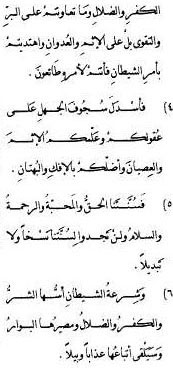 الكفر والضلال وما تعاونتم على البرّ
والتقوى بل على الإثم والعدوان واهتديتم
بأمر الشيطان فأنتم لأمره طائعون.
٤) فأسدل سجوف الجهل على
عقولكم وعلّمكم الإثم
والعصيان وأضلّكم بالإفك والبهتان.
٥) فسنّتنا الحقّ والمحبّة والرحمة
والسلام ولن تجدوا لسنّتنا نسخاً ولا
تبديلاً.
٦) وشرعة الشيطان أسّها الشرّ
والكفر والضلال ومصيرها البوار
وسيلقى أتباعها عذاباً وبيلاً.